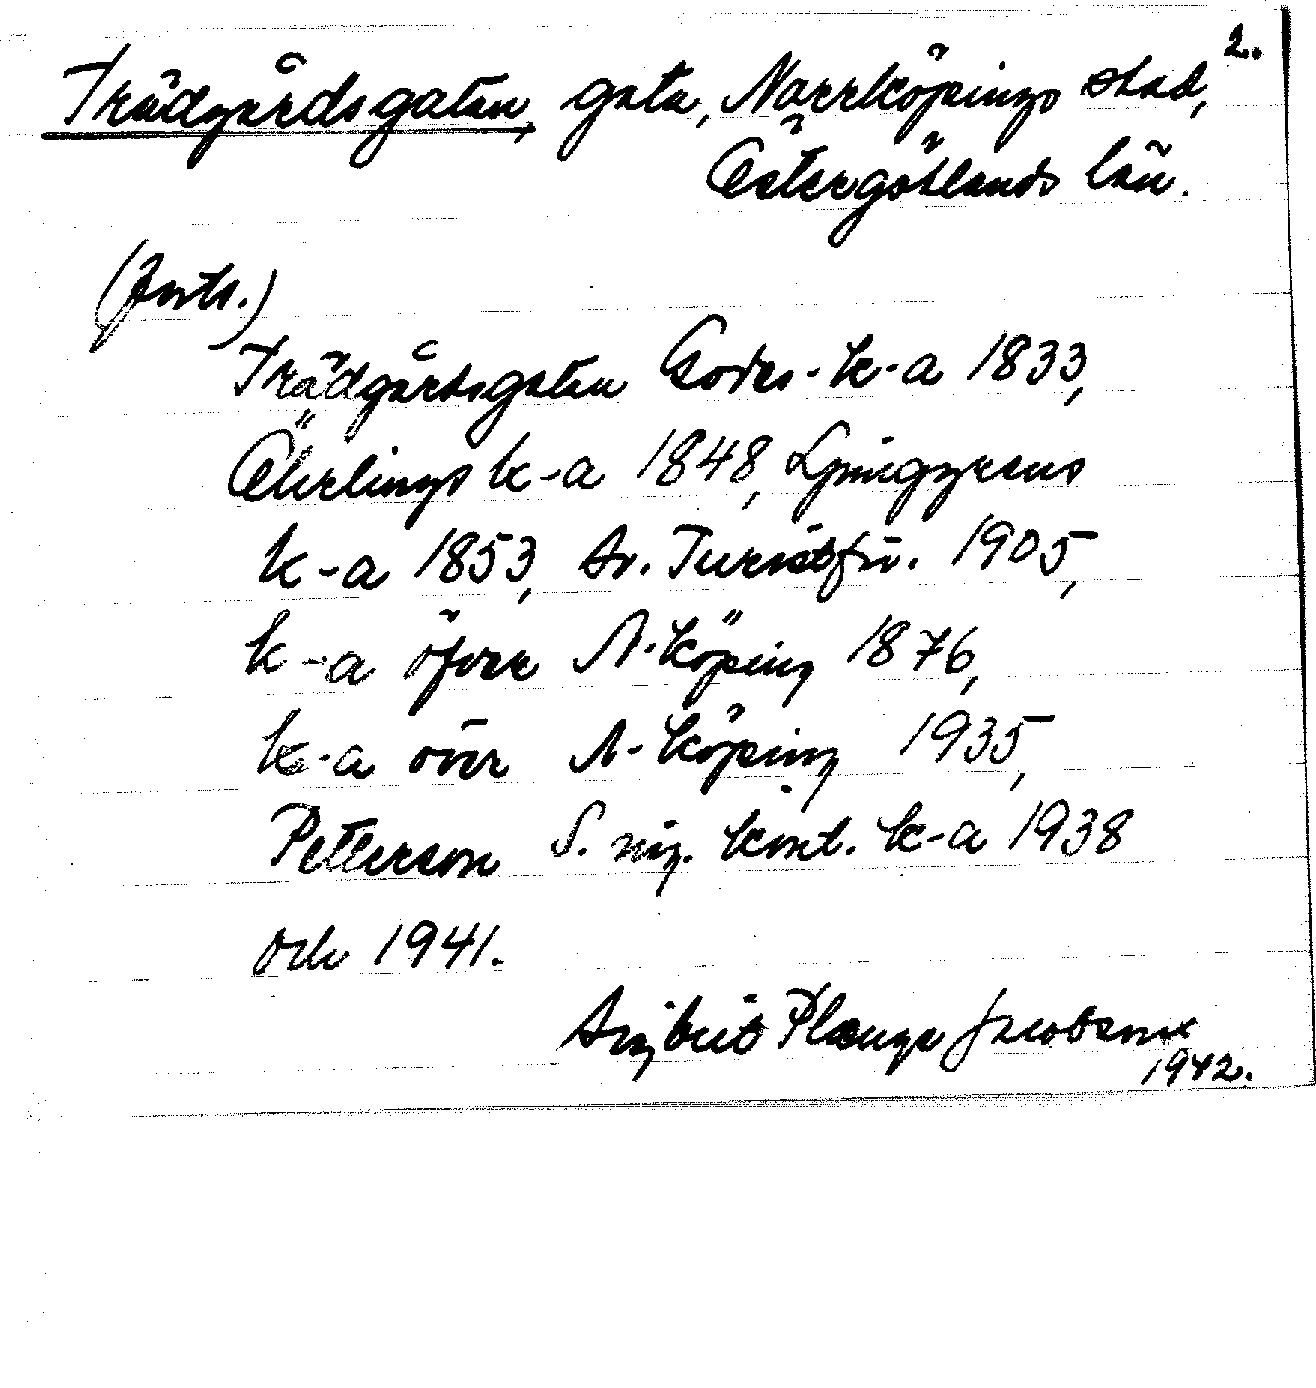 2.
Trädgårdsgatan, gata, Norrköpings stad,
Östergötlands län.
(forts.)
Trädgårdsgatan Godes-k-a 1833,
Öhrlings k-a 1848, Ljunggrens
k-a 1853, Sv. Turistför. 1905,
k-a öfver N-köping 1876,
k-a över N-köping 1935,
Petterson S. ing. kont. k-a 1938
och 1941.
Ingbrit Jacobsson
1942.